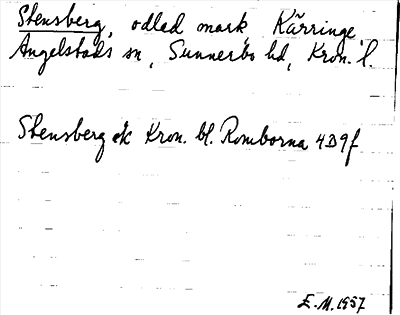 Stensberg, odlad mark Kärringe
Angelstads sn, Sunnerbo hd, Kron. l.
Stensberg ek Kron. bl. Romborna 4D9f
E.M. 1957